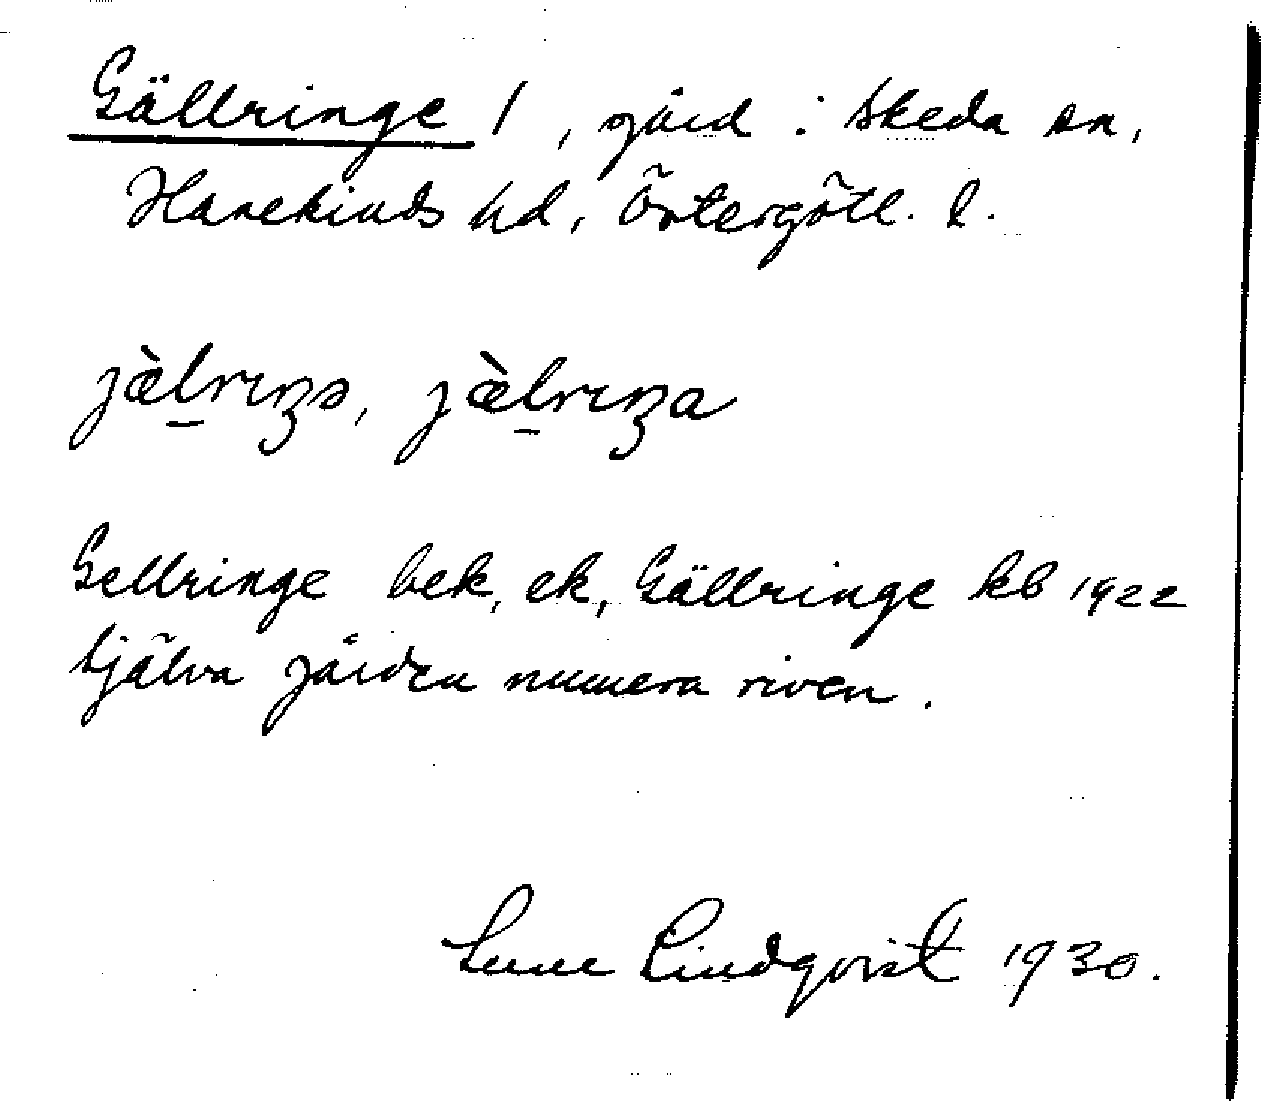 Gällringe 1, gård i Skeda sn,
Hanekinds hd, Östergötl. l.
jæ̀l̠rɪŋə, jæ̀l̠rɪŋa
Gellringe bek, ek, Gällringe kb 1922
Själva gården numera riven.
Sune Lindqvist 1930.